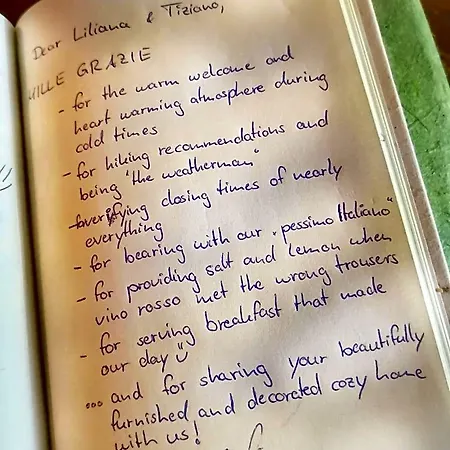 Dear Liliana & Tiziano,
MILLE GRAZIE
- for the warm welcome and
heart warming atmosphere during
cold times
- for hiking recommendations and
being "the weatherman"
- verifying closing times of nearly
everything
- for bearing with our "pessimo Italiano"
- for providing salt and lemon when
vino rosso met the wrong trousers
- for serving breakfast that made
our day
... and for sharing your beautifully
furnished and decorated cozy home
with us!